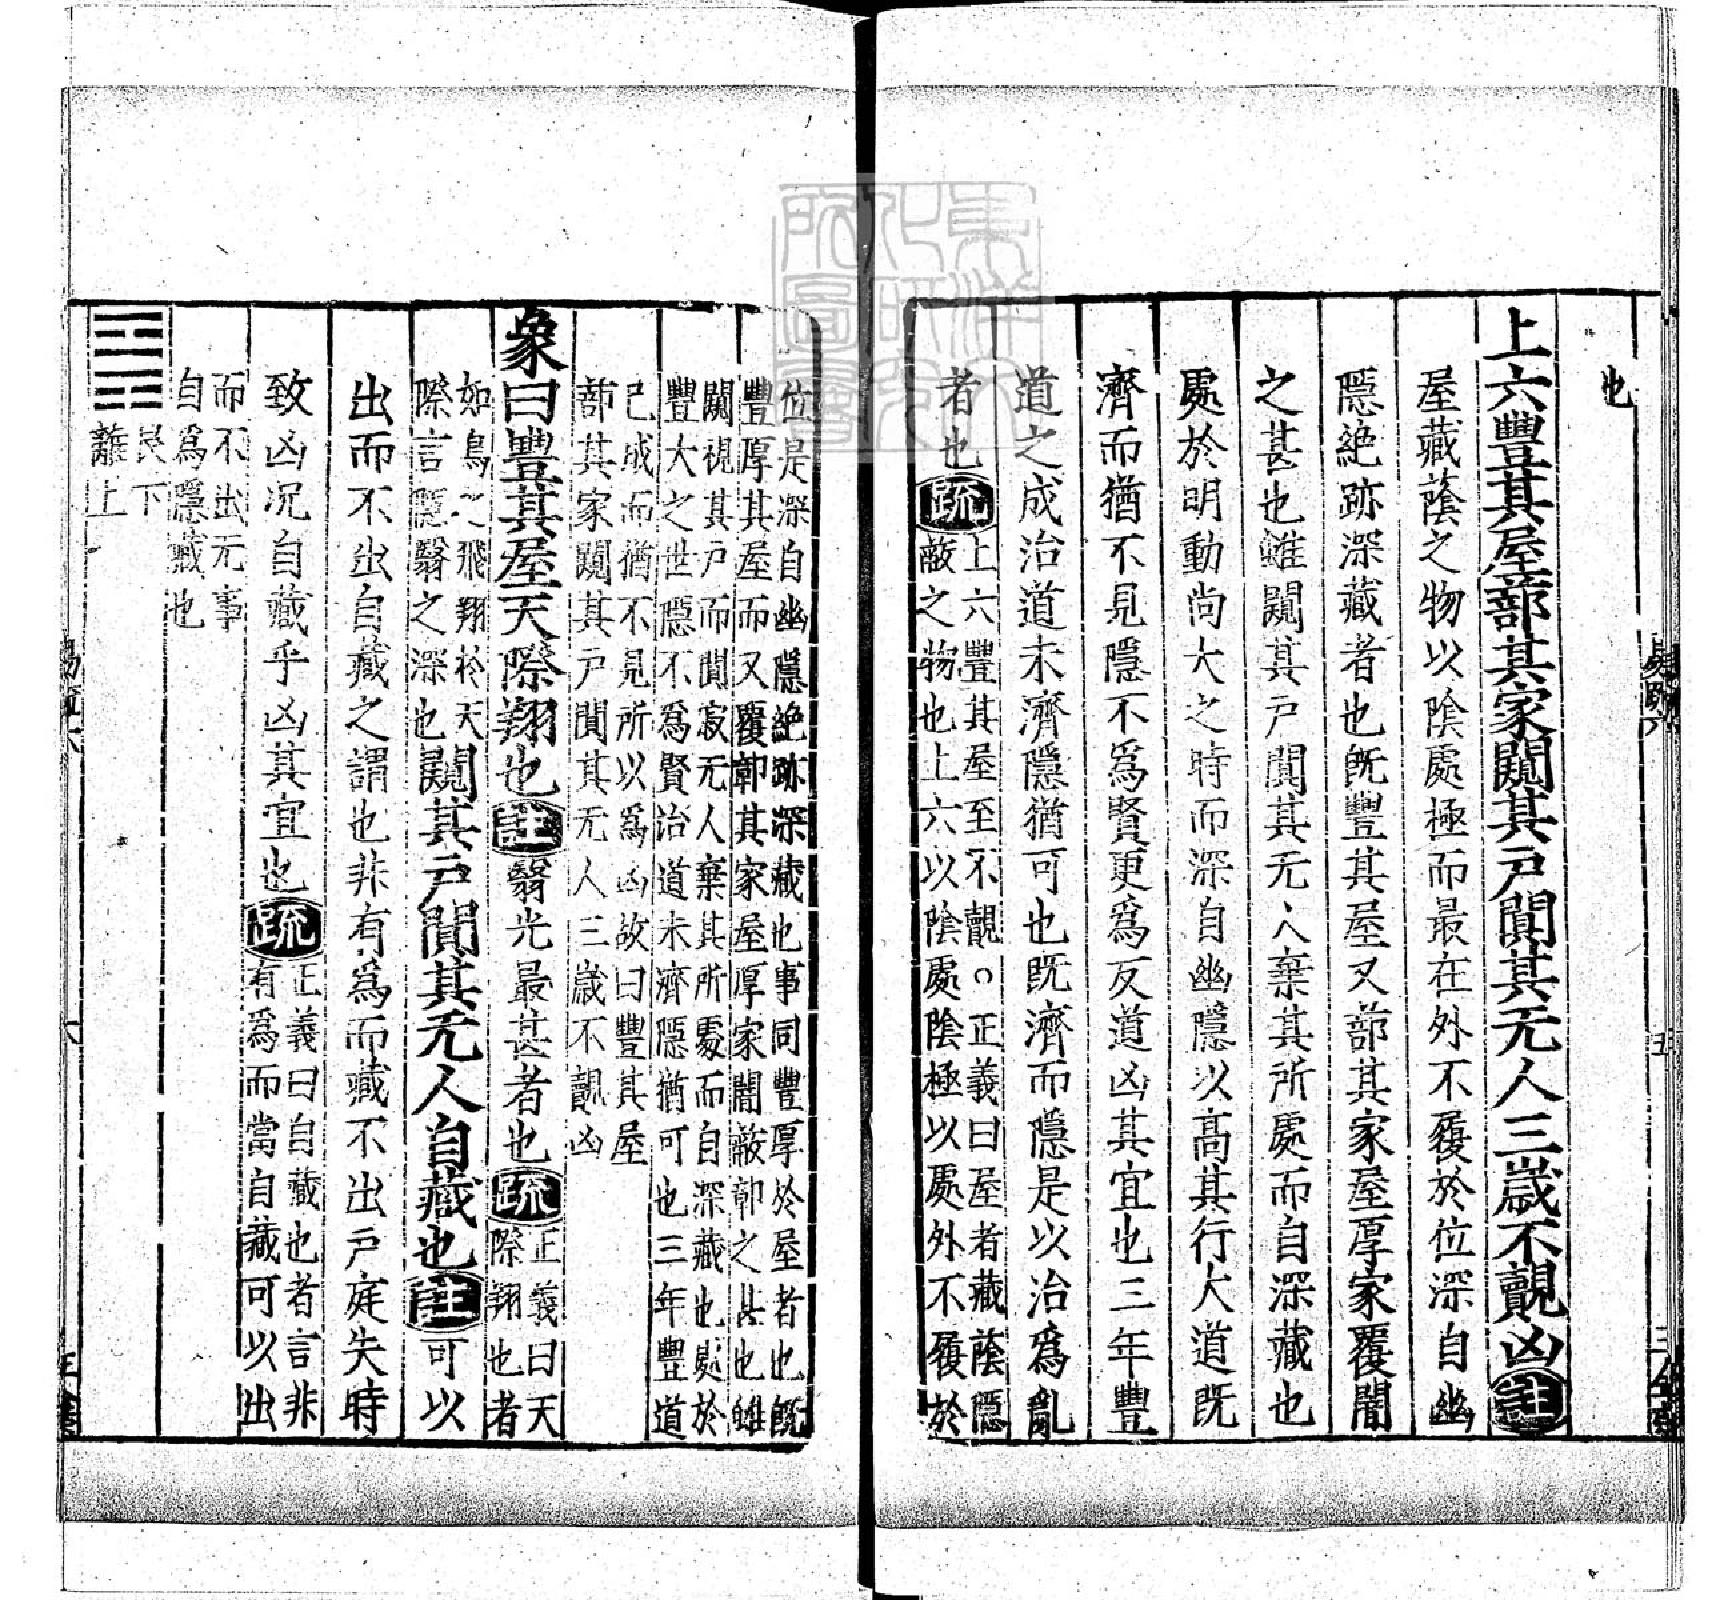 也
上六豐其屋蔀其家闚其戸闃其无人三歲不覿凶註
屋藏蔭之物以陰處極而最在外不履於位深自幽
隱絶跡深藏者也既豐其屋又蔀其家屋厚家覆闇
之甚也雖闚其戸闃其无人棄其所處而自深藏也
處於明動尚大之時而深自幽隱以高其行大道既
濟而猶不見隱不爲賢更爲反道凶其宜也三年豐
道之成治道未濟隱猶可也既濟而隱是以治爲亂
者也疏
上六豐其屋至不覿○正義曰屋者藏蔭隱
蔽之物也上六以陰處陰極以處外不履於
位是深自幽隱絶跡深藏也事同豐厚於屋者也既
豐厚其屋而又覆鄣其家屋厚家闇蔽鄣之甚也雖
闚視其戸而闃寂无人棄其所處而自深藏也處於
豐大之世隱不爲賢治道未濟隱猶可也三年豐道
已成而猶不見所以爲凶故曰豐其屋
蔀其家闚其戸闃其无人三歲不覿凶
象曰豐其屋天際翔也註翳光最甚者也疏
正義曰天
際翔也者
如鳥之飛翔於天
際言隱翳之深也
闚其戸闃其无人自藏也註可以
出而不出自藏之謂也非有爲而藏不出戸庭失時
致凶況自藏乎凶其宜也疏
正義曰自藏也者言非
有爲而當自藏可以出
而不出无事
自爲隱藏也
艮下
離上